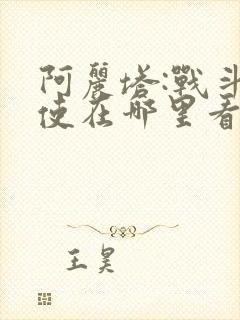 阿麗塔:戰斗
使在哪里看
王昊